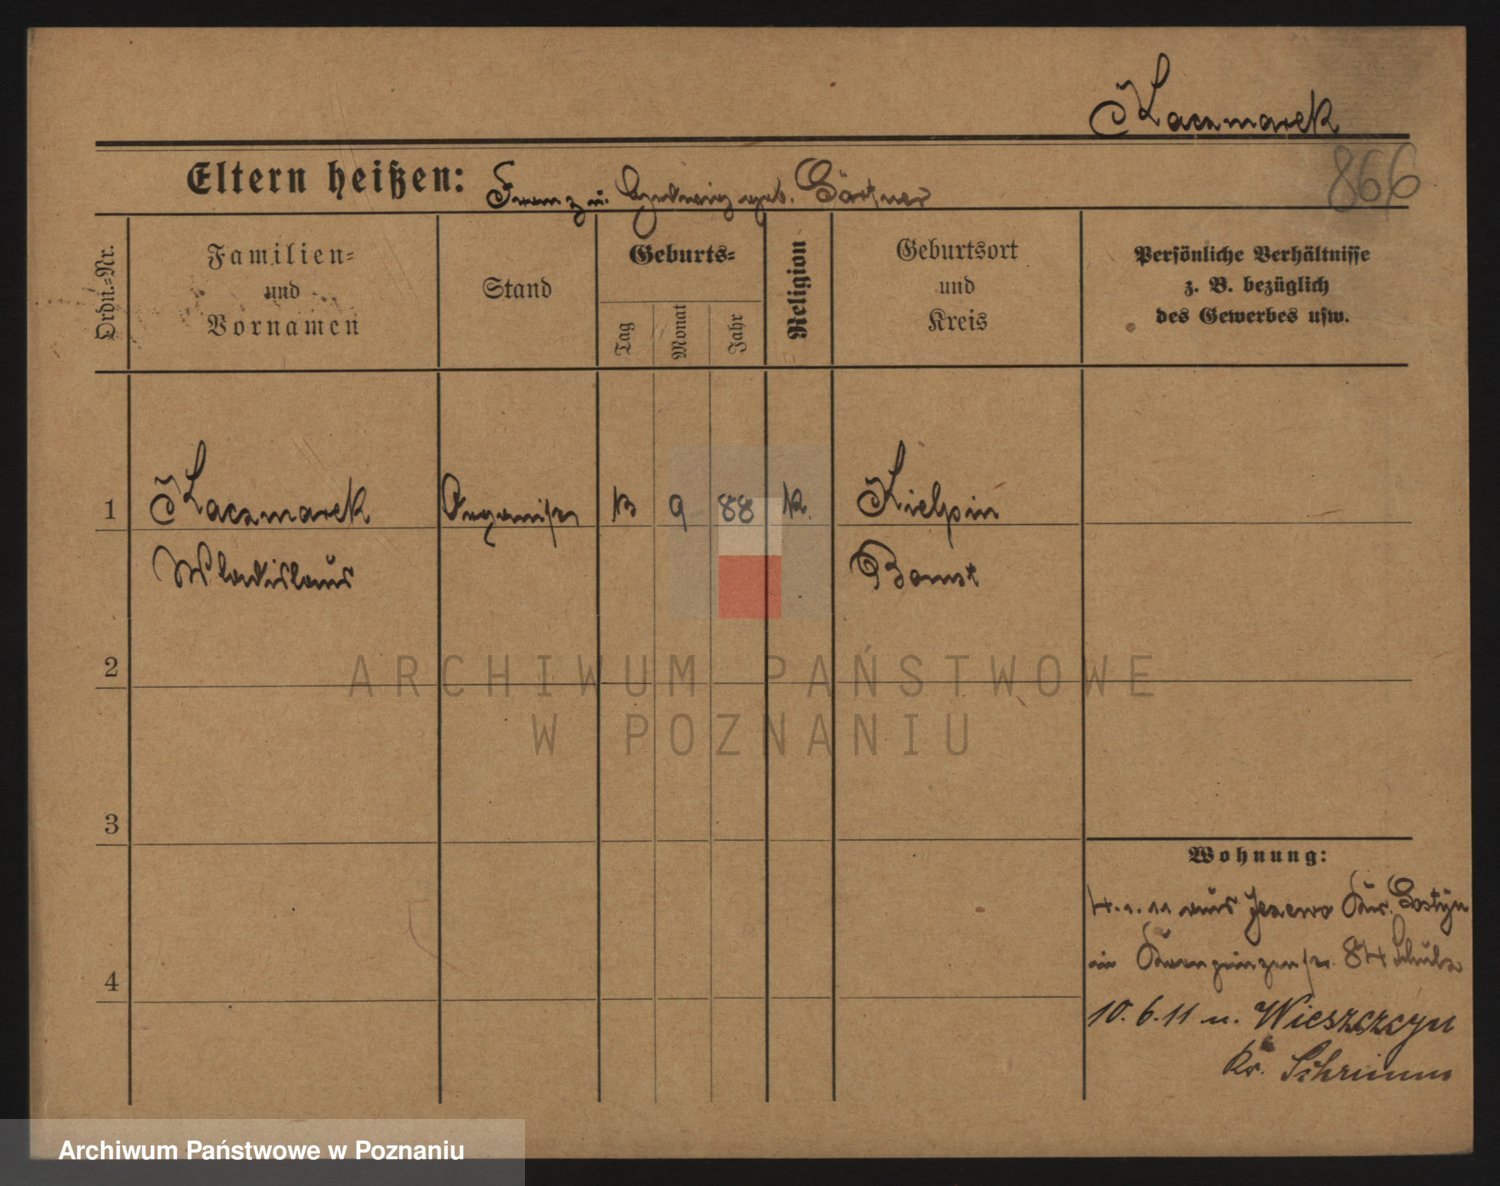 Kaczmarek
866
Eltern heißen: Franz u. Hedwig geb. Gärtner
Ordn.-Nr.
Familien-
und
Vornamen
Stand
Geburts-
Tag
Monat
Jahr
Religion
Geburtsort
und
Kreis
Persönliche Verhältnisse
z. B. bezüglich
des Gewerbes usw.
1 Kaczmarek Organist 13 9 88 k. Kielpin
Wladislaus Bomst
2
3
4
Wohnung:
4.1.11 aus Jezewo Kr. Gostyn
in Kronprinzenstr. 84 Schulz
10.6.11 n. Wieszczczyn
Kr. Schrimm
ARCHIWUM PAŃSTWOWE
W POZNANIU
Archiwum Państwowe w Poznaniu